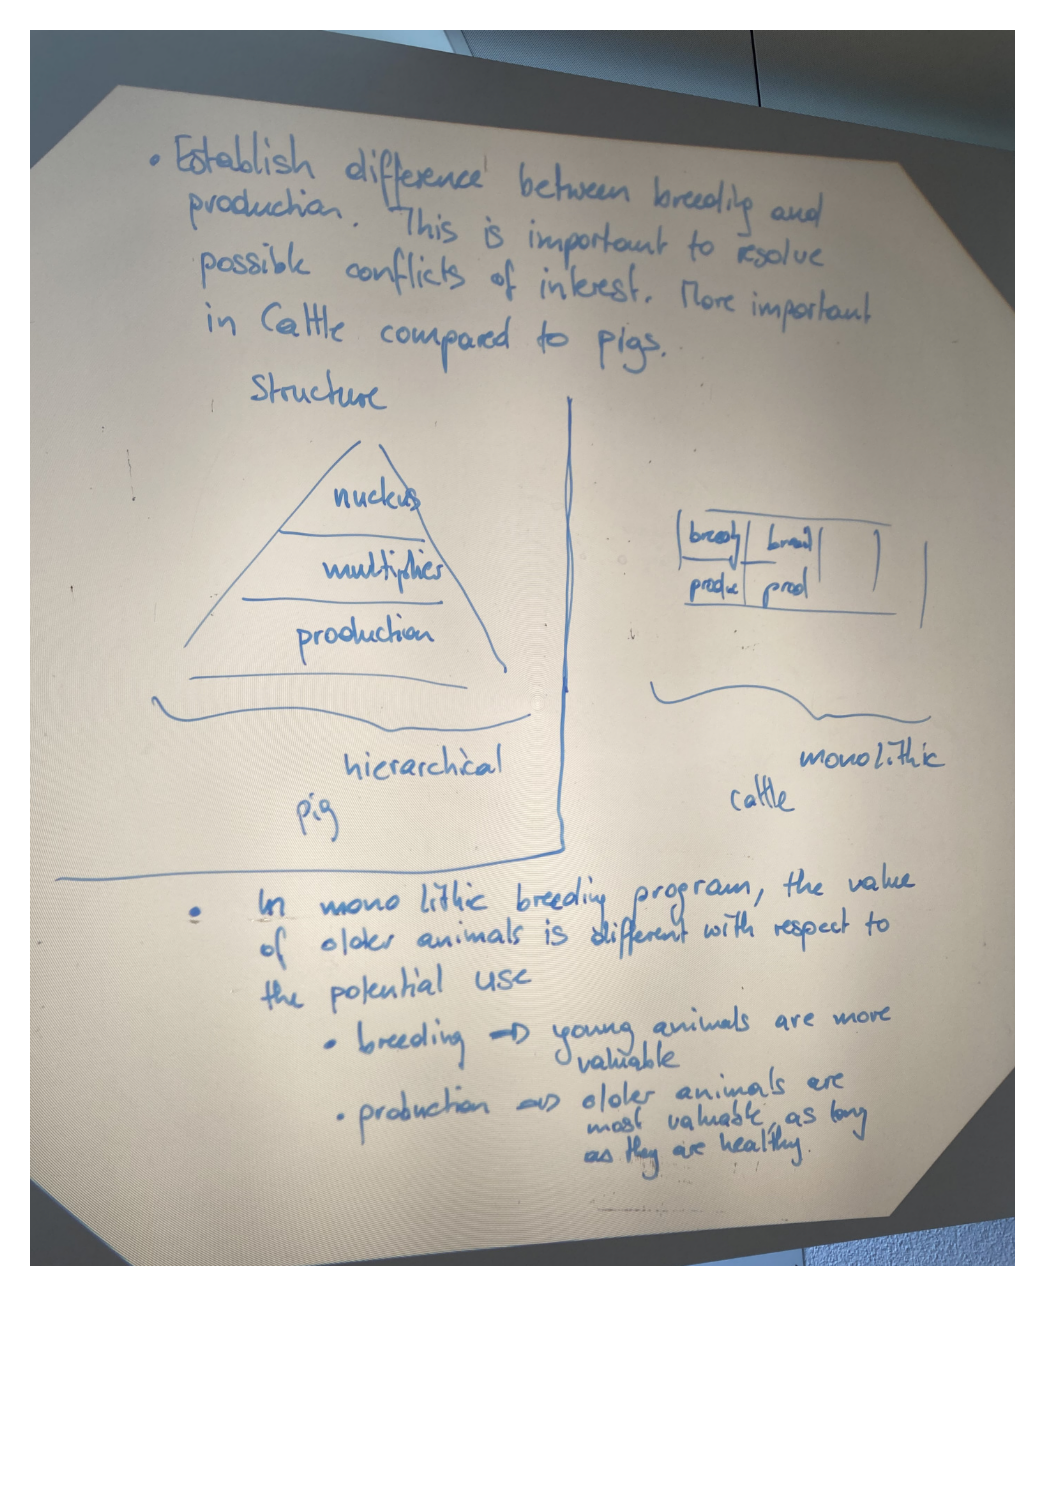 • Establish difference between breeding and
production. This is important to resolve
possible conflicts of interest. More important
in Cattle compared to pigs.
Structure
nucleus
multiplier
production
hierarchical
pig
breed
produc
prod
monolithic
cattle
• In mono lithic breeding program, the value
of older animals is different with respect to
the potential use
• breeding ⇒ young animals are more
valuable
• production ⇒ older animals are
most valuable, as long
as they are healthy.